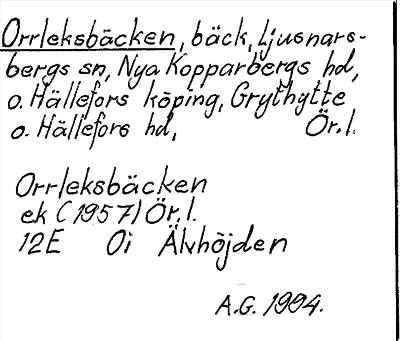 Orrleksbäcken, bäck, Ljusnars-
bergs sn, Nya Kopparbergs hd,
o. Hällefors köping, Grythytte
o. Hällefors hd, Ör.l.
Orrleksbäcken
ek (1957) Ör.l.
12E 0i Älvhöjden
A.G. 1994.